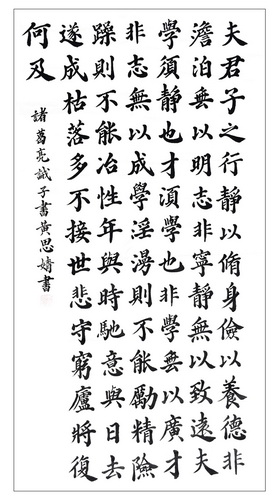 夫君子之行靜以脩身儉以養德非
澹泊無以明志非寧靜無以致遠夫
學須靜也才須學也非學無以廣才
非志無以成學淫漫則不能勵精險
躁則不能冶性年與時馳意與日去
遂成枯落多不接世悲守窮廬將復
何及
諸葛亮誡子書黃思婧書